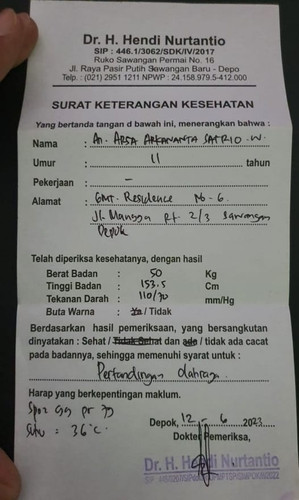 Dr. H. Hendi Nurtantio
SIP : 446.1/3062/SDK/IV/2017
Ruko Sawangan Permai No. 16
Jl. Raya Pasir Putih Sawangan Baru - Depo
Telp. : (021) 2951 1211 NPWP : 24.158.979.5-412.000
SURAT KETERANGAN KESEHATAN
Yang bertanda tangan d bawah ini, menerangkan bahwa :
Nama : An. ARSA ARKANANTA SATRIO .W.
Umur : 11 tahun
Pekerjaan : -
Alamat : GMT. Residence No-6.
Jl. Mangga Rt 2/3 Sawangan
Depok
Telah diperiksa kesehatanya, dengan hasil
Berat Badan : 50 Kg
Tinggi Badan : 153.5 Cm
Tekanan Darah : 110/70 mm/Hg
Buta Warna : Ya / Tidak
Berdasarkan hasil pemeriksaan, yang bersangkutan
dinyatakan : Sehat / Tidak Sehat dan ada / tidak ada cacat
pada badannya, sehingga memenuhi syarat untuk :
Pertandingan olahraga
Harap yang berkepentingan maklum.
Suhu : 36°C.
Depok, 12 - 6 2023
Dokter Pemeriksa,
Dr. H. Hendi Nurtantio